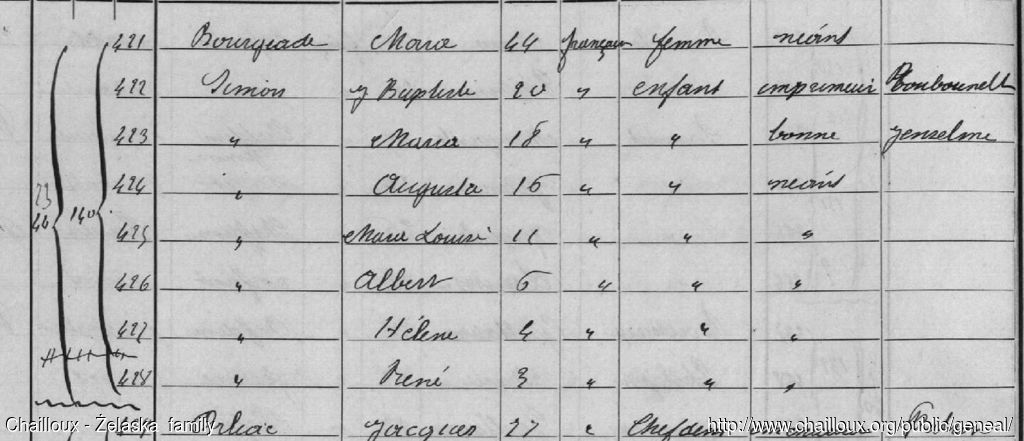 421 Bourgeade Marie 44 française femme néant
422 Simon J Baptiste 20 " enfant imprimeur
423 " Maria 18 " " bonne Jenselme
424 " Augusta 16 " " néant
425 " Marie Louise 11 " " "
23
40 140
426 " Albert 6 " " "
427 " Hélène 4 " " "
428 " René 3 " " "
Jacques 27 "
Chailloux - Żelaska family
http://www.chailloux.org/public/geneal/